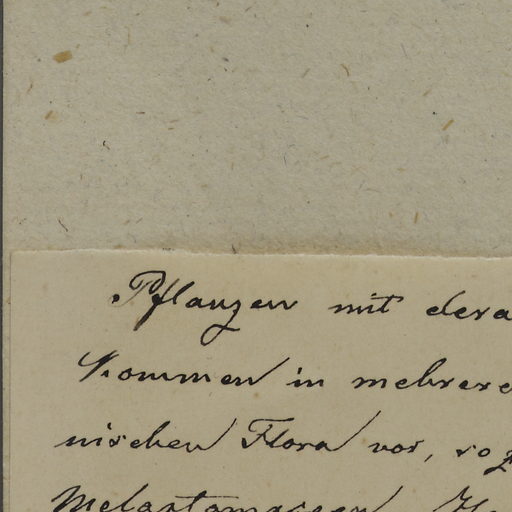 Pflanzen mit dera
kommen in mehrere
nischen Flora vor, so z
Melastomaceen